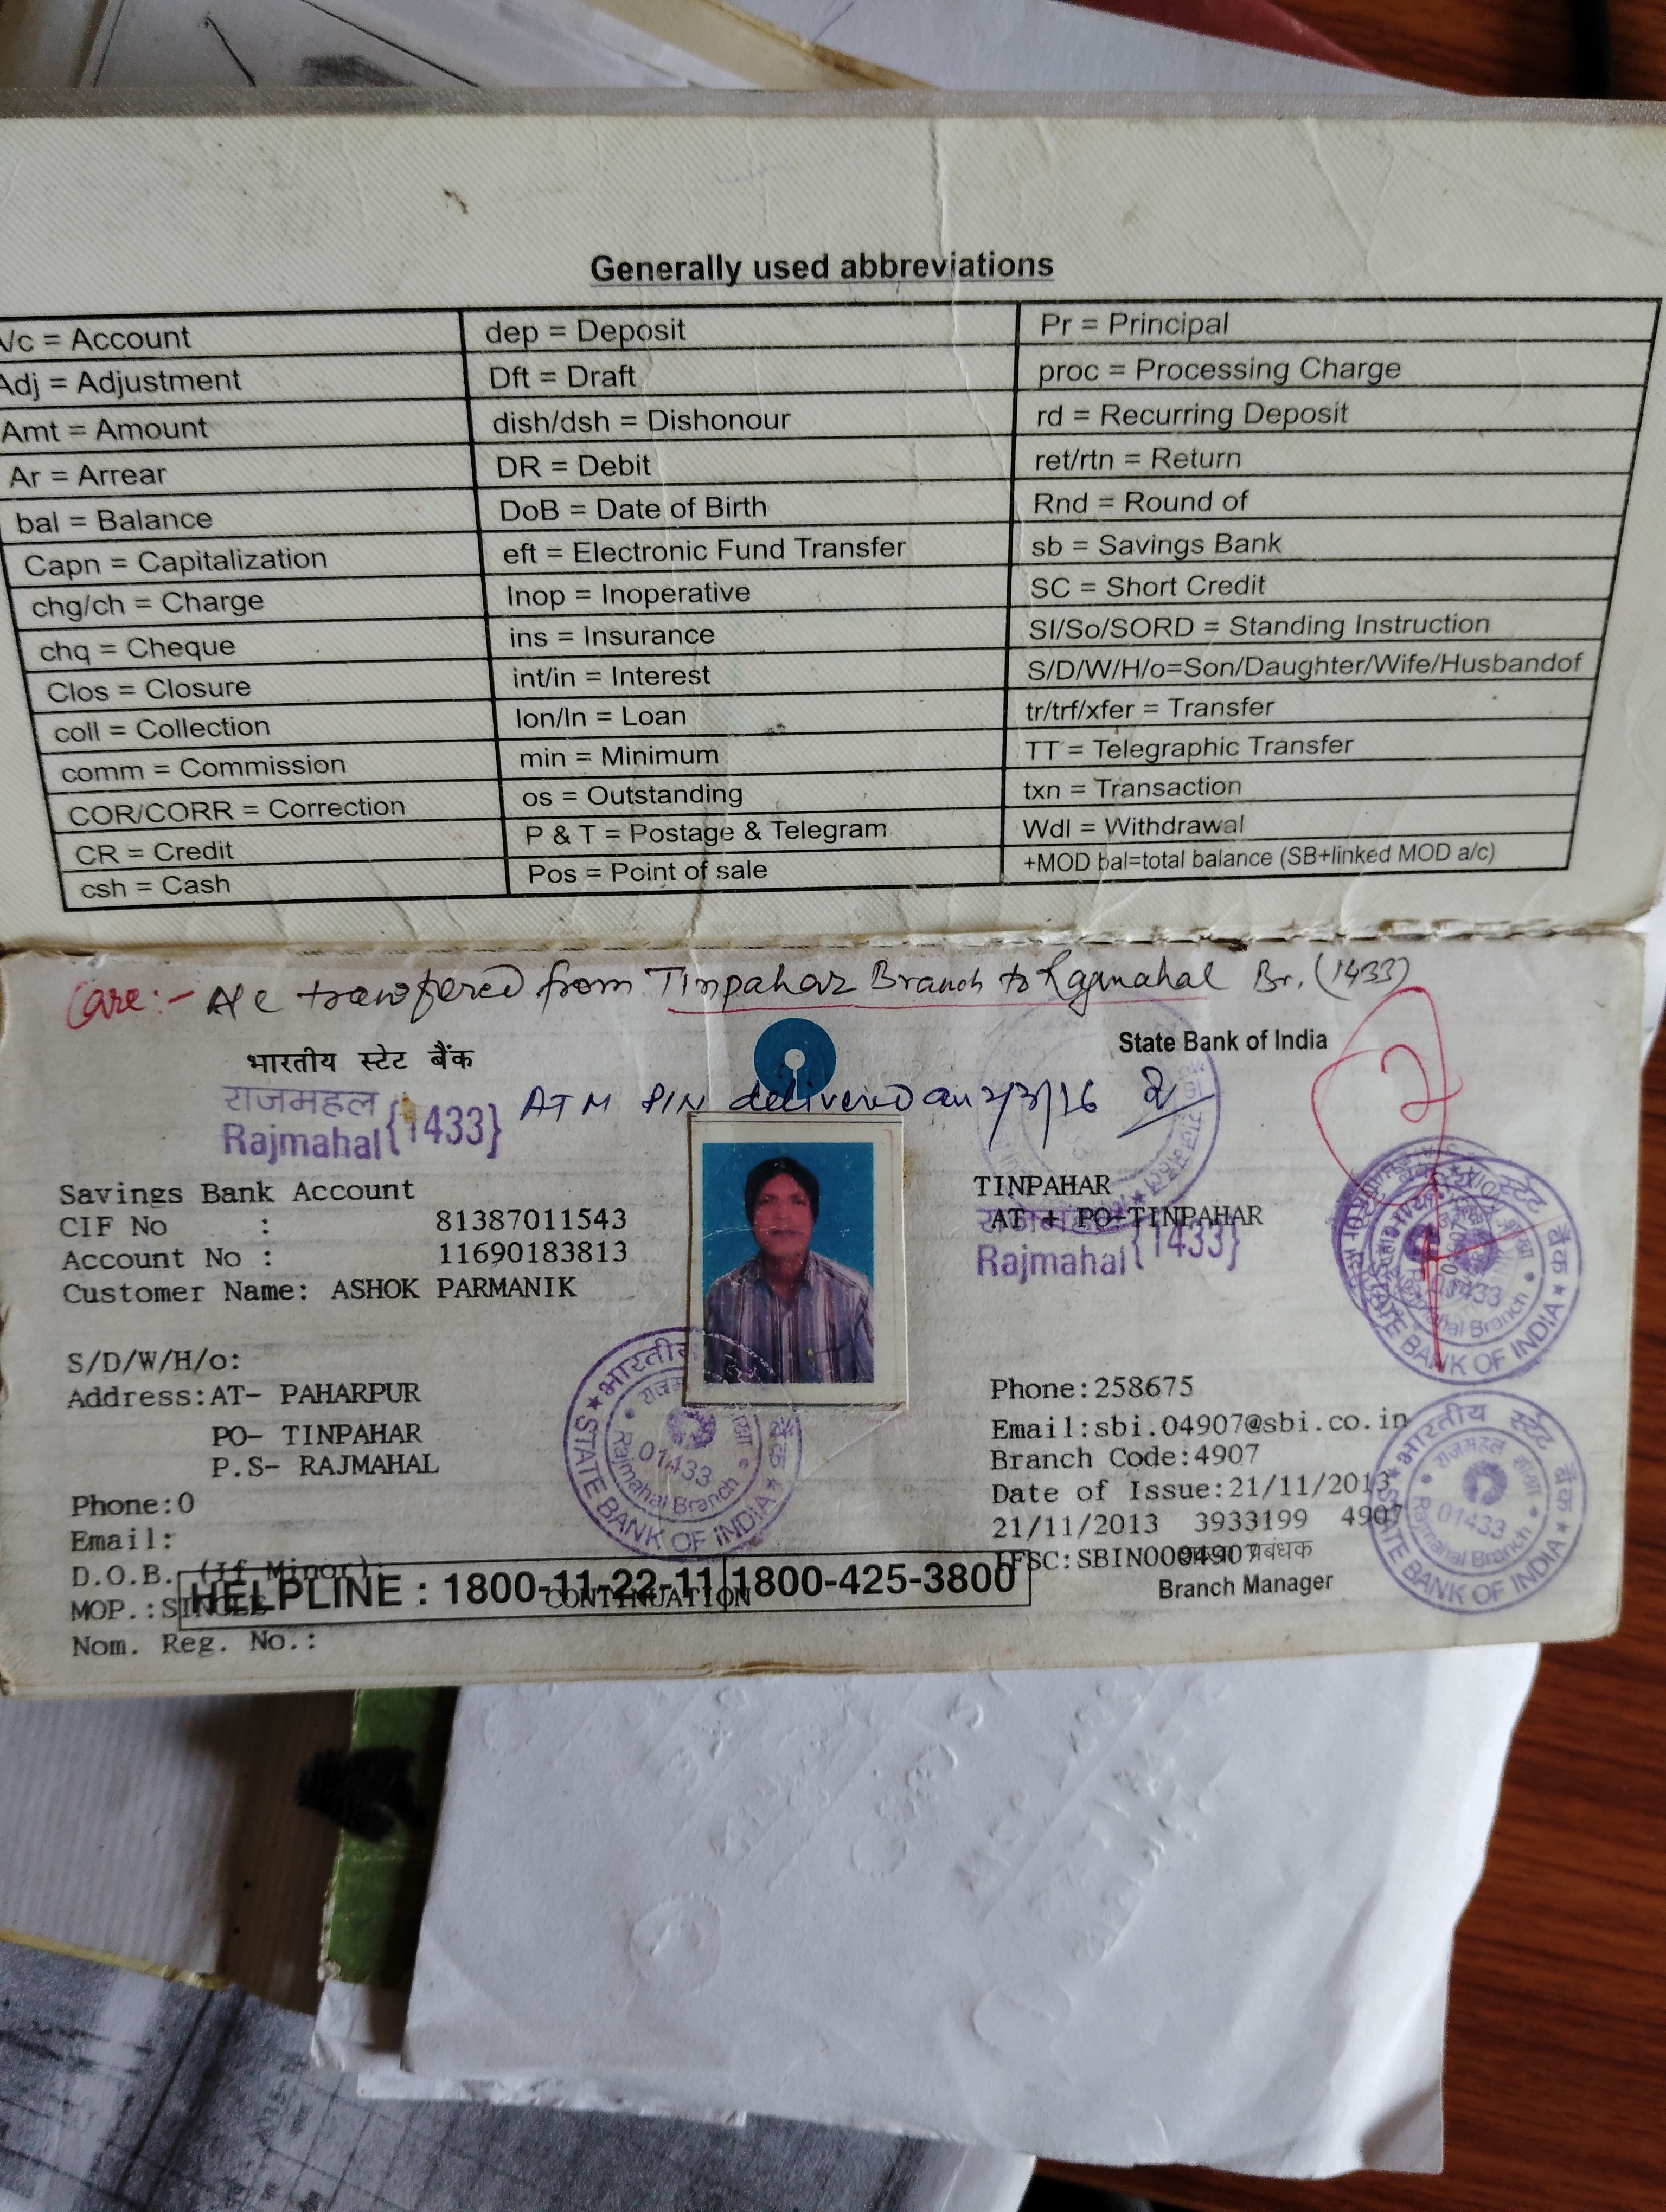 Generally used abbreviations
A/c = Account
Adj = Adjustment
Amt = Amount
Ar = Arrear
bal = Balance
Capn = Capitalization
chg/ch = Charge
chq = Cheque
Clos = Closure
coll = Collection
comm = Commission
COR/CORR = Correction
CR = Credit
csh = Cash
dep = Deposit
Dft = Draft
dish/dsh = Dishonour
DR = Debit
DoB = Date of Birth
eft = Electronic Fund Transfer
Inop = Inoperative
ins = Insurance
int/in = Interest
lon/ln = Loan
min = Minimum
os = Outstanding
P & T = Postage & Telegram
Pos = Point of sale
Pr = Principal
proc = Processing Charge
rd = Recurring Deposit
ret/rtn = Return
Rnd = Round of
sb = Savings Bank
SC = Short Credit
SI/So/SORD = Standing Instruction
S/D/W/H/o=Son/Daughter/Wife/Husbandof
tr/trf/xfer = Transfer
TT = Telegraphic Transfer
txn = Transaction
Wdl = Withdrawal
+MOD bal=total balance (SB+linked MOD a/c)
Care:- A/c transfered from Tinpahar Branch to Rajmahal Br. (1433)
भारतीय स्टेट बैंक
State Bank of India
राजमहल
Rajmahal {1433}
ATM PIN delivered on 2/3/16
Savings Bank Account
CIF No : 81387011543
Account No : 11690183813
Customer Name: ASHOK PARMANIK
S/D/W/H/o:
Address:AT- PAHARPUR
PO- TINPAHAR
P.S- RAJMAHAL
Phone:0
Email:
D.O.B. (If Minor):
MOP.:SINGLE
Nom. Reg. No.:
HELPLINE : 1800-11-22-11 1800-425-3800
CONTINUATION
TINPAHAR
AT + PO-TINPAHAR
Rajmahal {1433}
Phone:258675
Email:sbi.04907@sbi.co.in
Branch Code:4907
Date of Issue:21/11/2013
21/11/2013 3933199 4907
IFSC:SBIN0004907
प्रबंधक
Branch Manager
भारतीय स्टेट बैंक
STATE BANK OF INDIA
01433
Rajmahal Branch
स्टेट बैंक
STATE BANK OF INDIA
भारतीय स्टेट बैंक
राजमहल शाखा
01433
Rajmahal Branch
STATE BANK OF INDIA